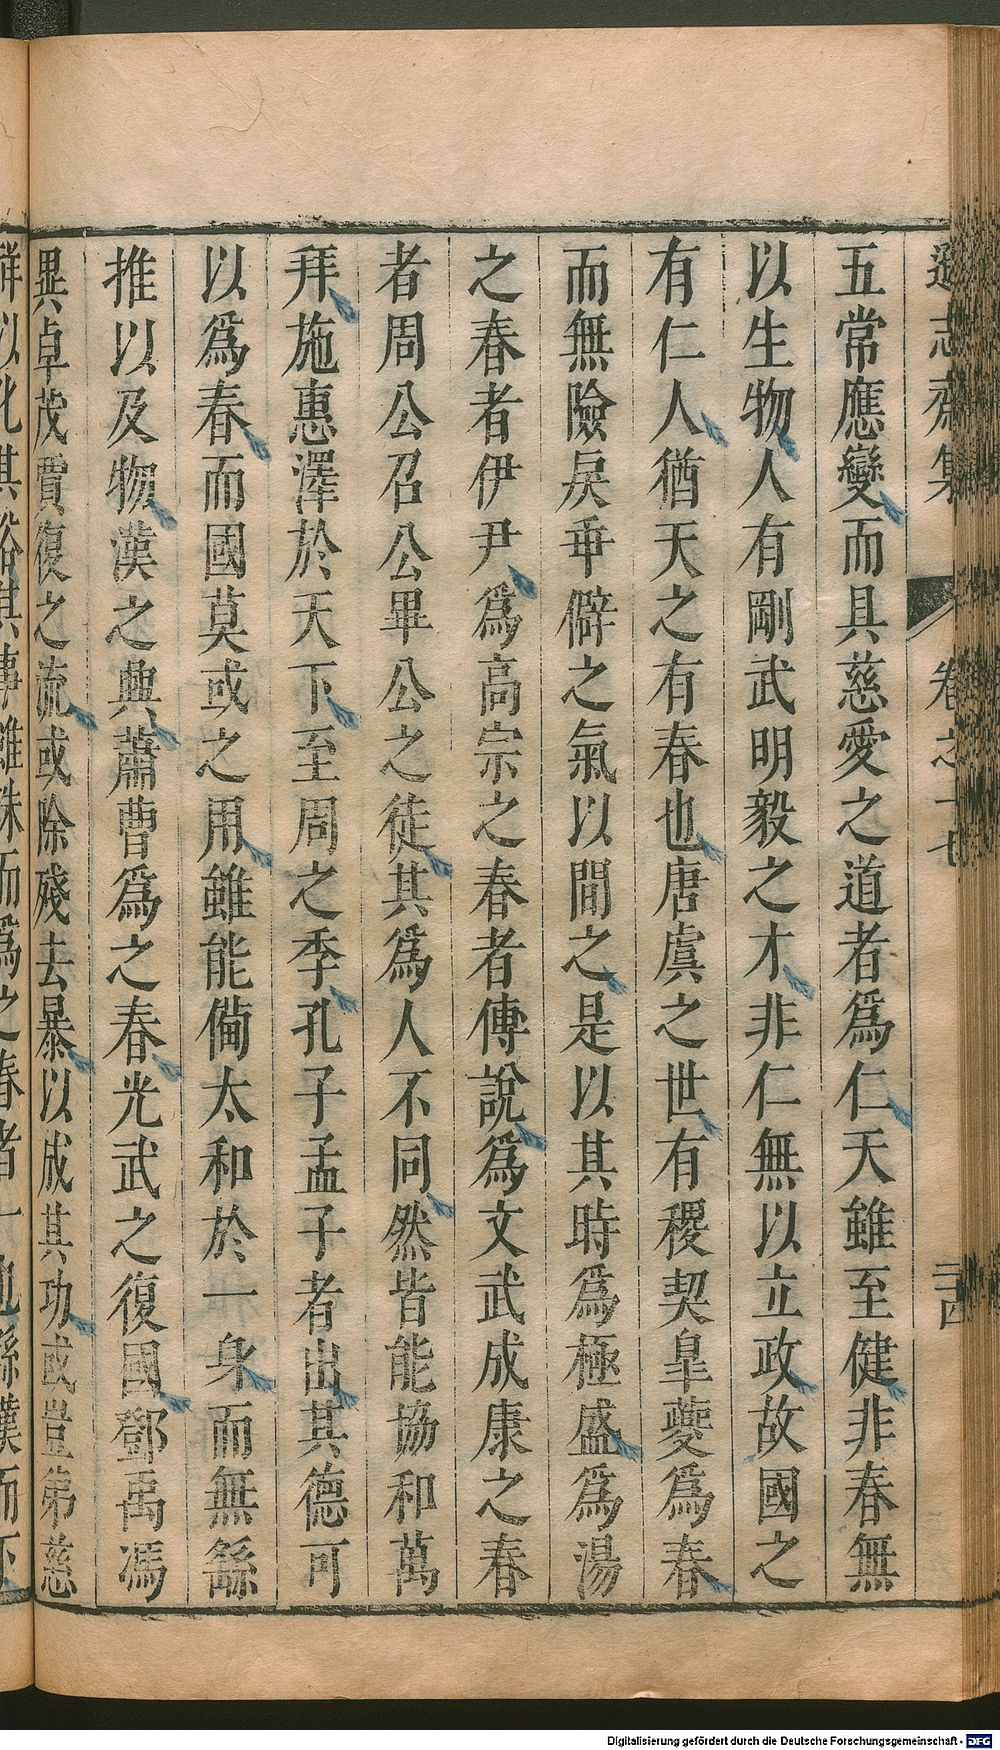 遜志齋集 卷之十七 二十四
五常應變而具慈愛之道者爲仁天雖至健非春無
以生物人有剛武明毅之才非仁無以立政故國之
有仁人猶天之有春也唐虞之世有稷契臯夔爲春
而無險戾乖僻之氣以間之是以其時爲極盛爲湯
之春者伊尹爲高宗之春者傅說爲文武成康之春
者周公召公畢公之徒其爲人不同然皆能協和萬
拜施惠澤於天下至周之季孔子孟子者出其德可
以爲春而國莫或之用雖能備太和於一身而無繇
推以及物漢之興蕭曹爲之春光武之復國鄧禹馮
異卓茂賈復之流或除殘去暴以成其功或豈弟慈
祥以化其俗其事雖殊而爲之春者一也繇漢而下
Digitalisierung gefördert durch die Deutsche Forschungsgemeinschaft - DFG